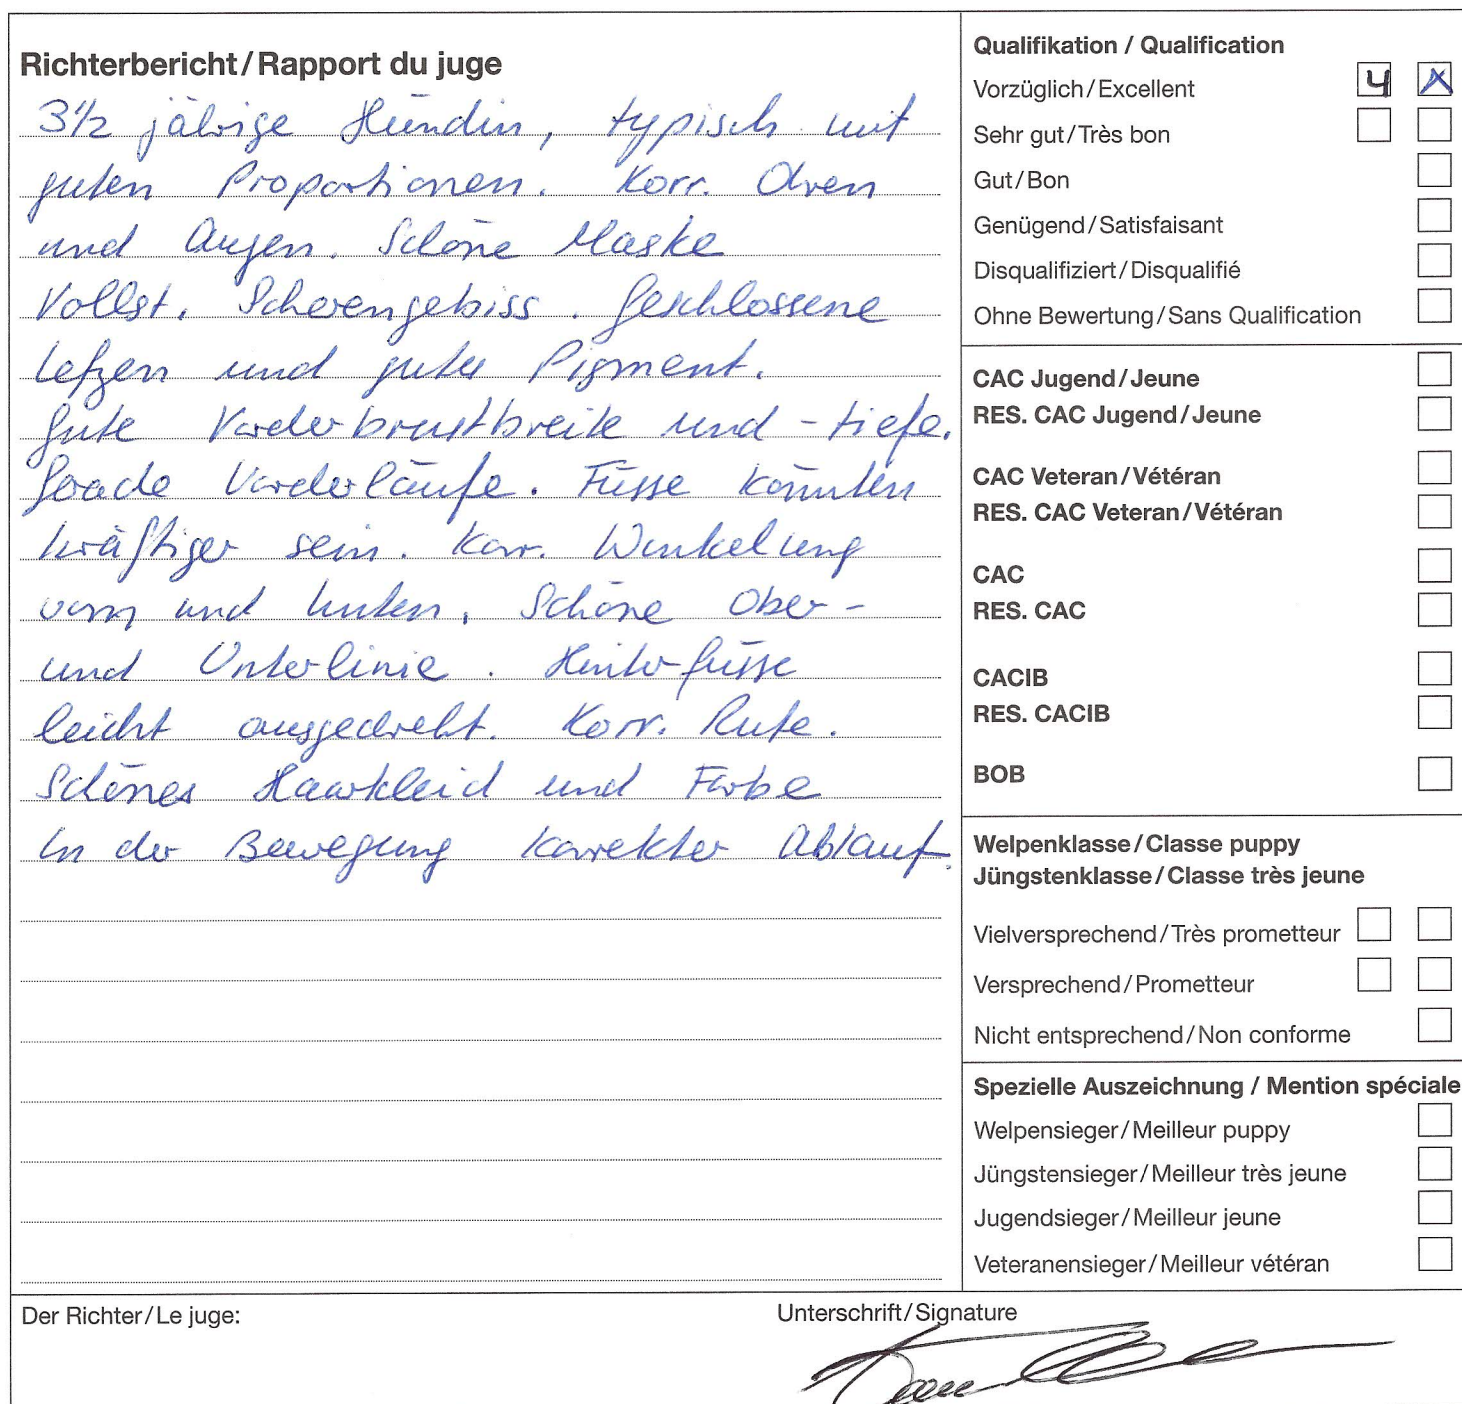 Richterbericht/Rapport du juge
3½ jährige Hündin, typisch mit
guten Proportionen. Korr. Ohren
und Augen. Schöne Maske
Vollst. Scherengebiss. Geschlossene
Lefzen und gutes Pigment.
Gute Vorderbrustbreite und -tiefe.
Gerade Vorderläufe. Füsse könnten
kräftiger sein. Korr. Winkelung
vorn und hinten. Schöne Ober-
und Unterlinie. Hinterfüsse
leicht ausgedreht. Korr. Rute.
Schönes Haarkleid und Farbe
In der Bewegung korrekter Ablauf.
Qualifikation / Qualification
Vorzüglich/Excellent 4 X
Sehr gut/Très bon
Gut/Bon
Genügend/Satisfaisant
Disqualifiziert/Disqualifié
Ohne Bewertung/Sans Qualification
CAC Jugend/Jeune
RES. CAC Jugend/Jeune
CAC Veteran/Vétéran
RES. CAC Veteran/Vétéran
CAC
RES. CAC
CACIB
RES. CACIB
BOB
Welpenklasse/Classe puppy
Jüngstenklasse/Classe très jeune
Vielversprechend/Très prometteur
Versprechend/Prometteur
Nicht entsprechend/Non conforme
Spezielle Auszeichnung / Mention spéciale
Welpensieger/Meilleur puppy
Jüngstensieger/Meilleur très jeune
Jugendsieger/Meilleur jeune
Veteranensieger/Meilleur vétéran
Der Richter/Le juge:
Unterschrift/Signature